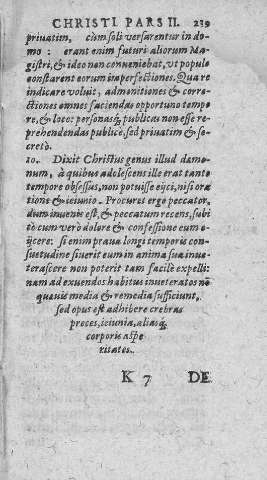 CHRISTI PARS II. 239
priuatim, cùm soli versarentur in do-
mo: erant enim futuri aliorum Ma-
gistri, & ideo non conueniebat, vt populo
constarent eorum imperfectiones. Qua re
indicare voluit, admonitiones & corre-
ctiones omnes faciendas opportuno tempo
re, & loco: personasq́; publicas non esse re-
prehendendas publicè, sed priuatim & se-
cretò.
10. Dixit Christus genus illud dæmo-
num, à quibus adolescens ille erat tanto
tempore obsessus, non potuisse eijci, nisi ora
tione & ieiunio. Procuret ergo peccator,
dum iuuenis est, & peccatum recens, subi
tò cum verò dolore & confessione eum e-
ijcere: si enim praua longi temporis con-
suetudine siuerit eum in anima sua inue-
terascere non poterit tam facilè expelli:
nam ad exuendos habitus inueteratos nō
quæuis media & remedia sufficiunt,
sed opus est adhibere crebras
preces, ieiunia, aliasq́;
corporis aspe
ritates.
K 7 DE